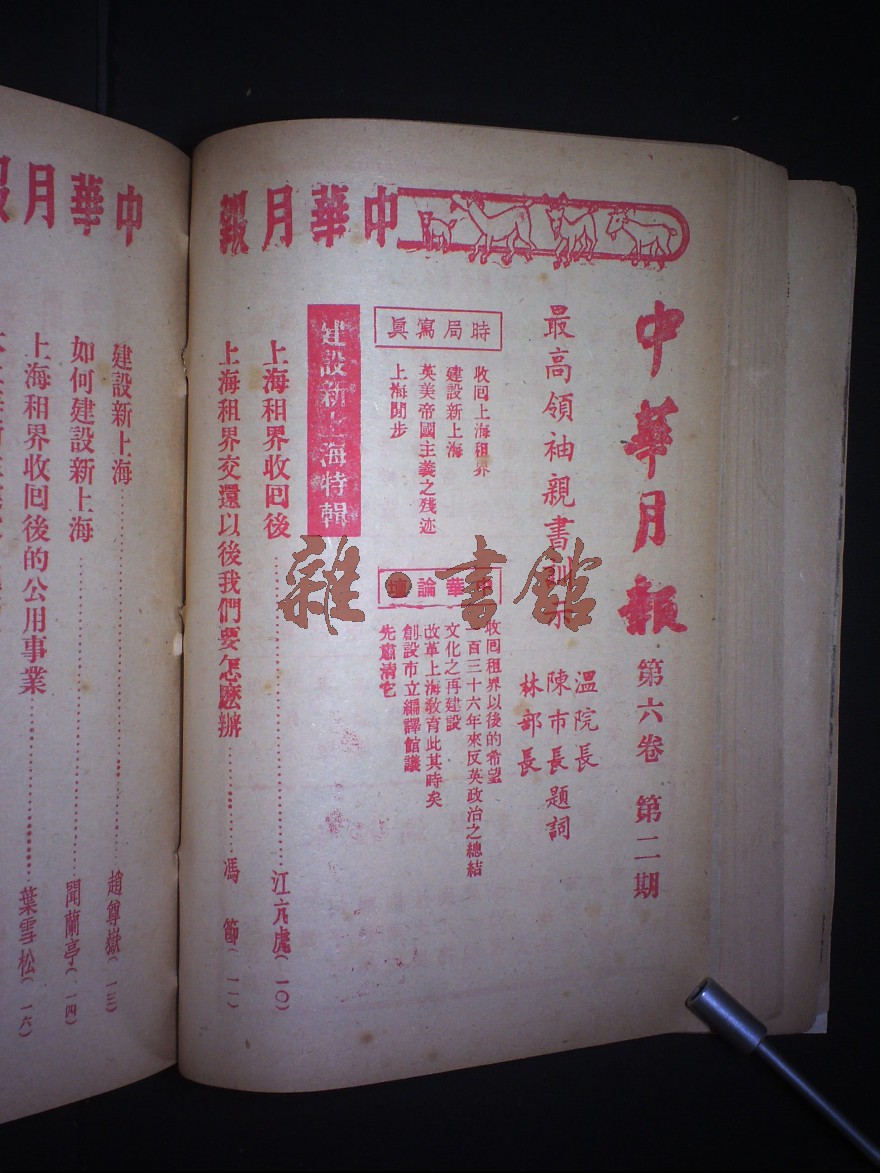 中華月報
中華月報 第六卷 第二期
最高領袖親書訓示
溫院長
陳市長題詞
林部長
時局寫眞
收回上海租界
建設新上海
英美帝國主義之殘迹
上海閒步
中華論壇
收回租界以後的希望
一百三十六年來反英政治之總結
文化之再建設
改革上海教育此其時矣
創設市立編譯館議
先肅清它
建設新上海特輯
上海租界收回後……江亢虎(一〇)
上海租界交還以後我們要怎麼辦……馮 節(一一)
雜·書館
中華月報
建設新上海……趙尊嶽(一三)
如何建設新上海……聞蘭亭(一四)
上海租界收回後的公用事業……葉雪松(一六)